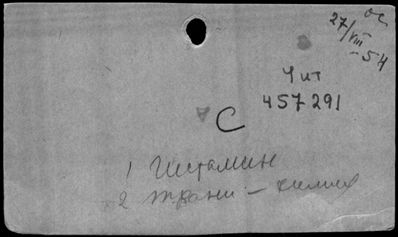 ос
27/VIII-54
Чит
457291
С
1 Гистамин
2 ткани - химия